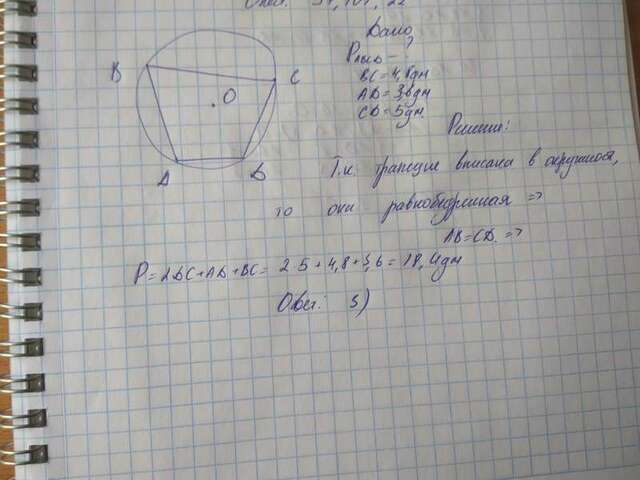 Дано
?
BC=4,8дм
AD=3,6дм
CD=5дм.
B
C
O
A
D
Решение:
Т.к. трапеция вписана в окружность,
то она равнобедренная =>
AB=CD. =>
P=2DC+AD+BC= 2·5+4,8+3,6=18,4дм
Ответ: 3)